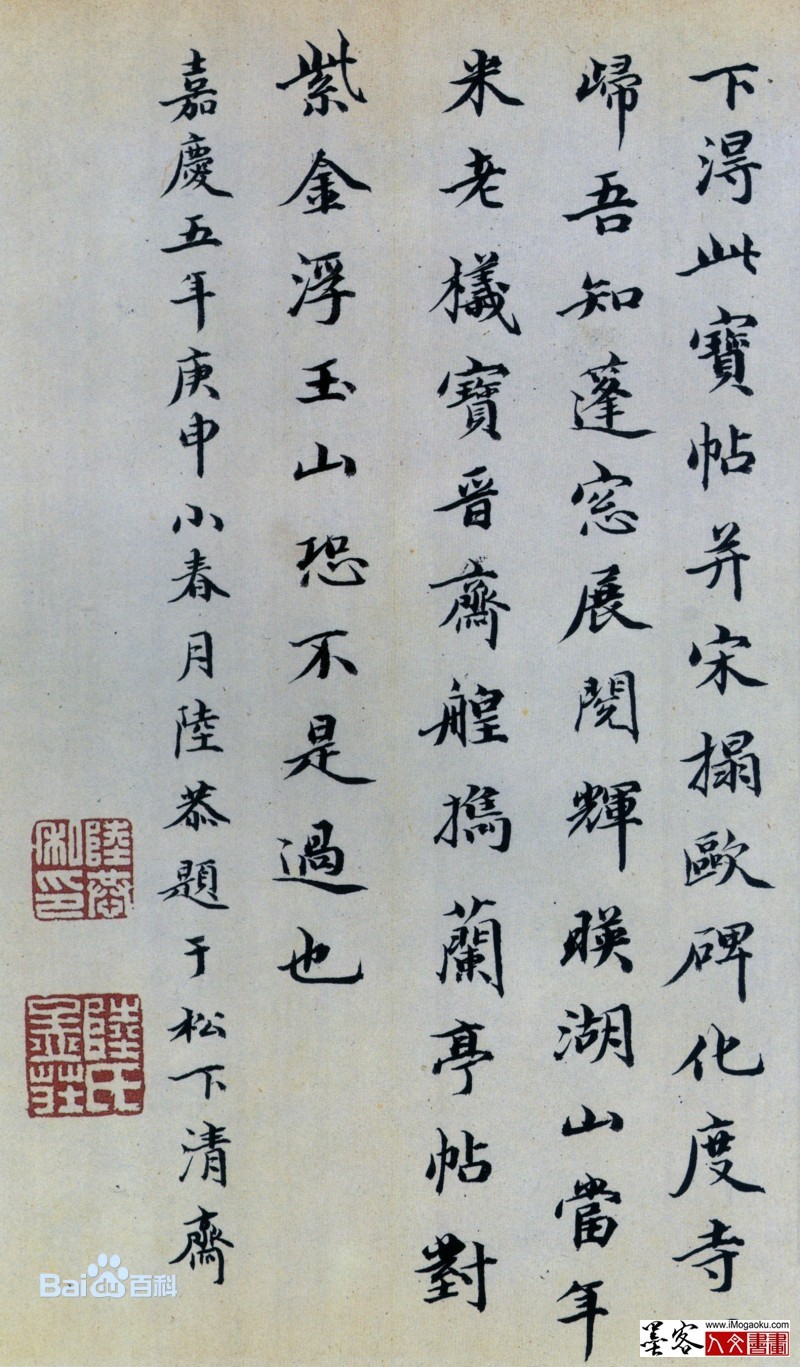 下淂此寳帖并宋搨歐碑化度寺
歸吾知蓬窓展閱輝暎湖山當年
米老檥寳晋齋艎擕蘭亭帖對
紫金浮玉山恐不是過也
嘉慶五年庚申小春月陸恭題于松下清齋
陸恭私印
陸氏
Bai 百科
墨客
www.iMogaoku.com
人文書畫